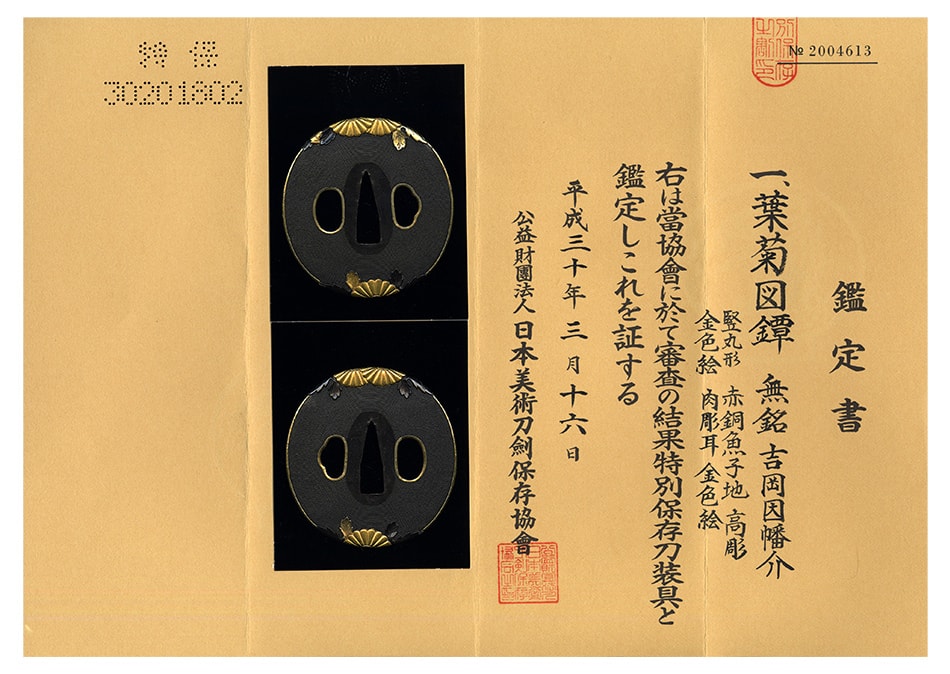 № 2004613
鑑定書
一、葉菊図鐔 無銘 吉岡因幡介
竪丸形 赤銅魚子地 高彫
金色絵 肉彫耳 金色絵
右は當協會に於て審査の結果特別保存刀装具と
鑑定しこれを証する
平成三十年三月十六日
公益財團法人 日本美術刀劍保存協會
特保
30201802